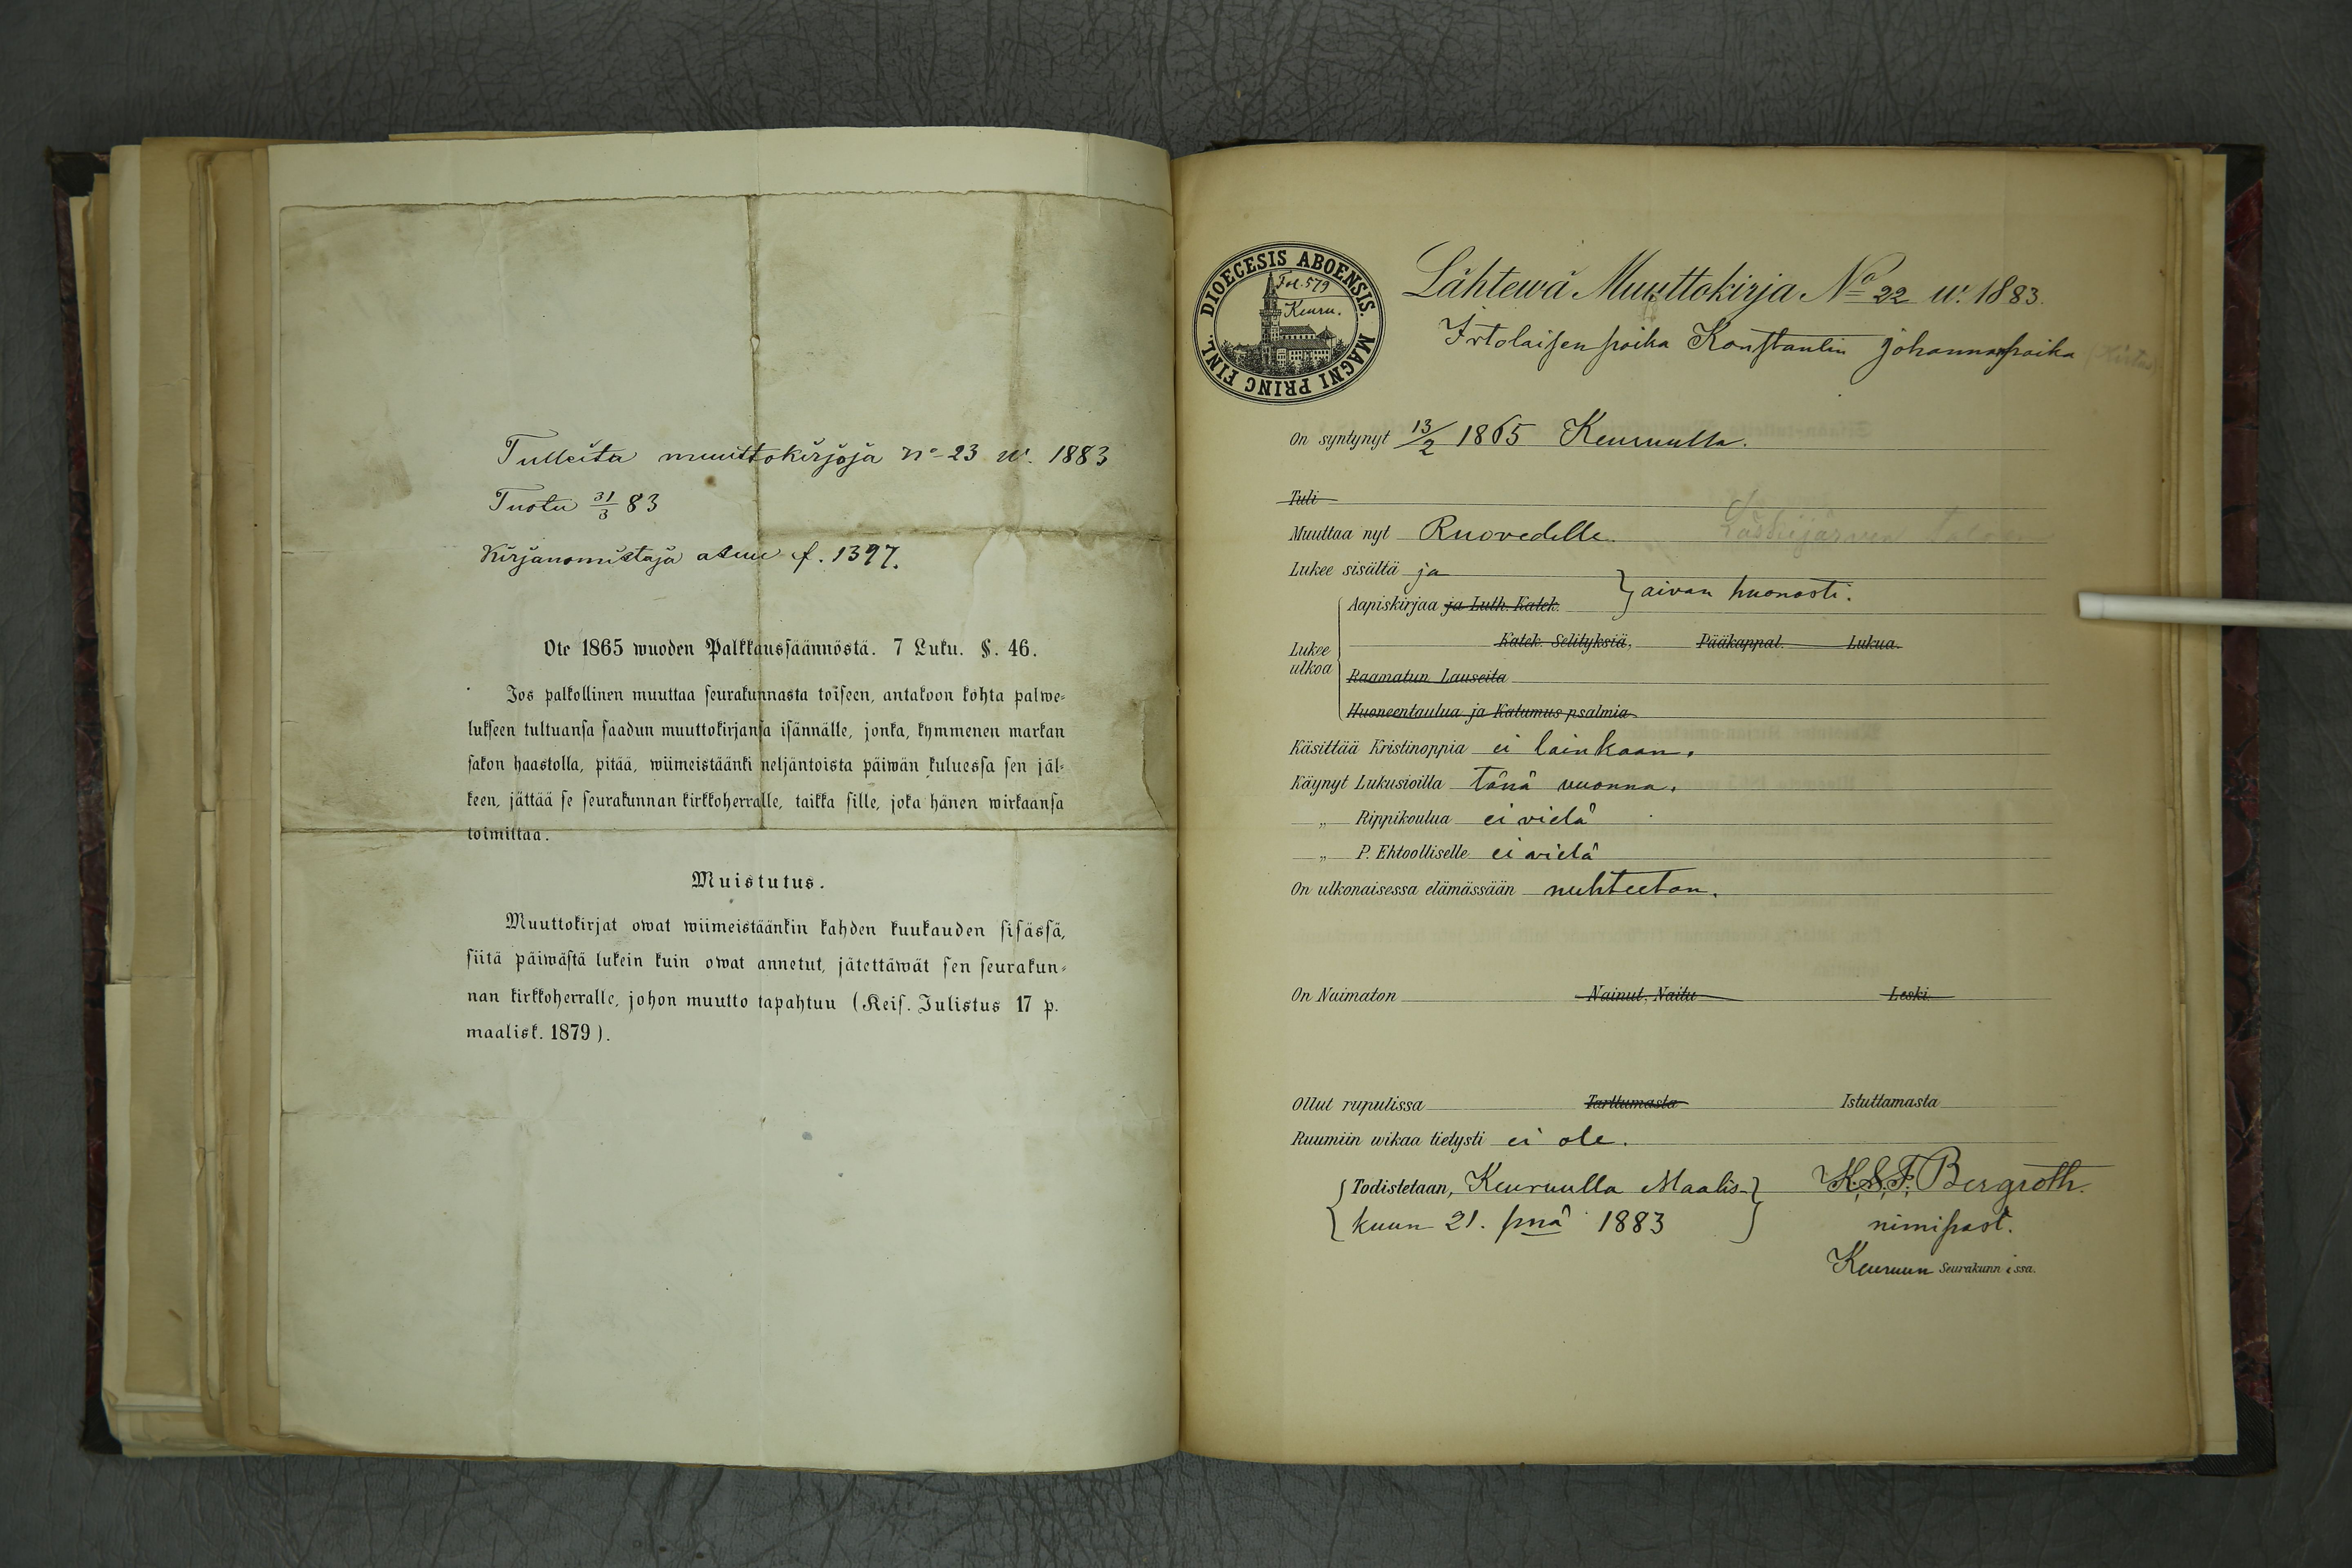 Tulleita muuttokirjoja nº 23 w. 1883
Tuotu 31/3 83
Kirjanomistaja asuu f. 1397.
Ote 1865 wuoden Palkkaussäännöstä. 7 Luku. §. 46.
Jos palkollinen muuttaa seurakunnasta toiseen, antakoon kohta palwe-
lukseen tultuansa saadun muuttokirjansa isännälle, jonka, kymmenen markan
sakon haastolla, pitää, wiimeistäänki neljäntoista päiwän kuluessa sen jäl-
keen, jättää se seurakunnan kirkkoherralle, taikka sille, joka hänen wirkaansa
toimittaa.
Muistutus.
Muuttokirjat owat wiimeistäänkin kahden kuukauden sisässä,
siitä päiwästä lukein kuin owat annetut, jätettäwät sen seurakun-
nan kirkkoherralle, johon muutto tapahtuu (Keis. Julistus 17 p.
maalisk. 1879).
DIOECESIS ABOENSIS. MAGNI PRINC FINL.
Fol. 579
Keuru.
Lähtewä Muuttokirja No 22 w. 1883.
Irtolaisen poika Konstantin Johannanpoika
On syntynyt 13/2 1865 Keuruulla.
Tuli
Muuttaa nyt Ruovedelle
Lukee sisältä ja
Aapiskirjaa ja Luth. Katek. } aivan huonosti.
Katek. Selityksiä, Pääkappal. Lukua.
Lukee ulkoa
Raamatun Lauseita
Huoneentaulua ja Katumus psalmia
Käsittää Kristinoppia ei lainkaan.
Käynyt Lukusioilla tänä vuonna.
„ Rippikoulua ei vielä
„ P. Ehtoolliselle ei vielä
On ulkonaisessa elämässään nuhteeton.
On Naimaton Nainut. Naitu Leski.
Ollut rupulissa Tarttumasta Istuttamasta
Ruumiin wikaa tietysti ei ole.
Todistetaan, Keuruulla Maalis-
kuun 21. pnä 1883
K.S.F. Bergroth.
nimipast.
Keuruun Seurakunnissa.